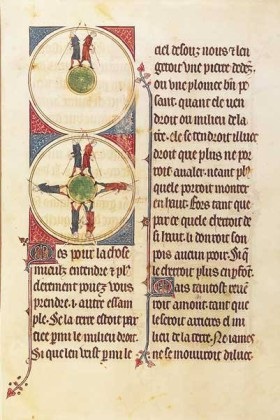 Mes pour la chose
mieulz entendre ⁊ pl
derement pouez vous
prendre .i. autre essam
ple. Se la terre estoit par
tiee p mi le milieu droit.
Si que len veist p mi le
ciel desouz nous ⁊ len
getoit une pierre dedez.
ou une plomee bñ pe
sant. quant ele ven
droit ou milieu de la
tre. ele se tendroit illuec
droit que plus ne por
roit avaler. neant pl
quele porroit monter
en haut. Fors tant que
par ce quele cherroit de
si haut. li donroit son
pois aucun pooir. Si q
le cherroit plus en pfont.
Mais tantost reven
roit amont. tant que
le seroit arriere el mi
lieu de la terre. Ne iames
ne se mouvroit diluec